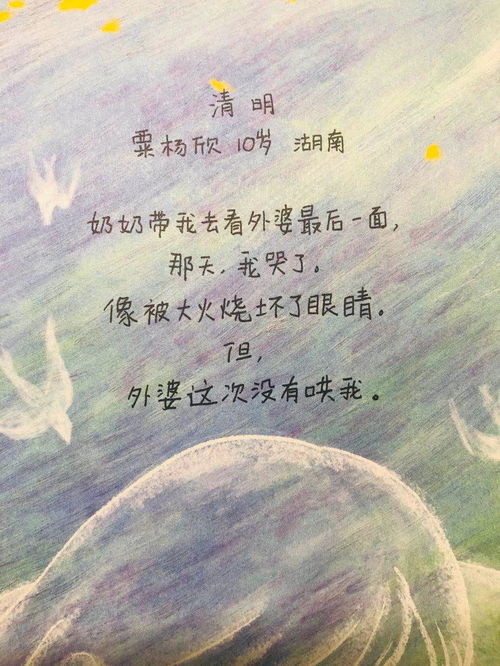 清明
粟杨欣 10岁 湖南
奶奶带我去看外婆最后一面，
那天，我哭了。
像被大火烧坏了眼睛。
但，
外婆这次没有哄我。